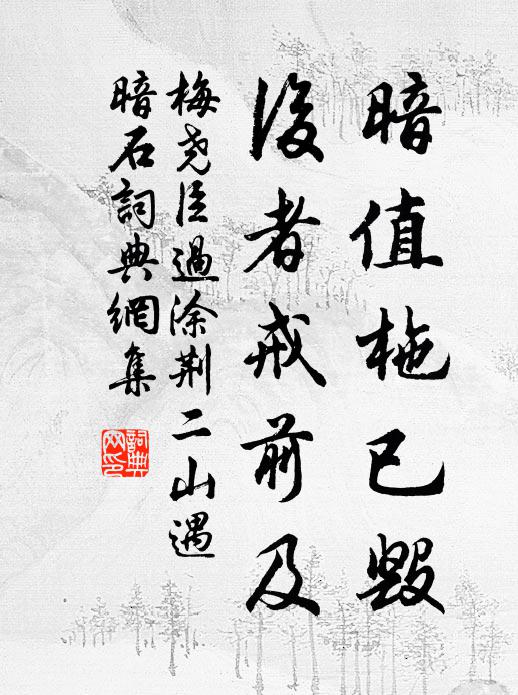 暗值柂已毀
後者戒前及
梅堯臣過涂荊二山遇
暗石詞典網集
詞典
网印